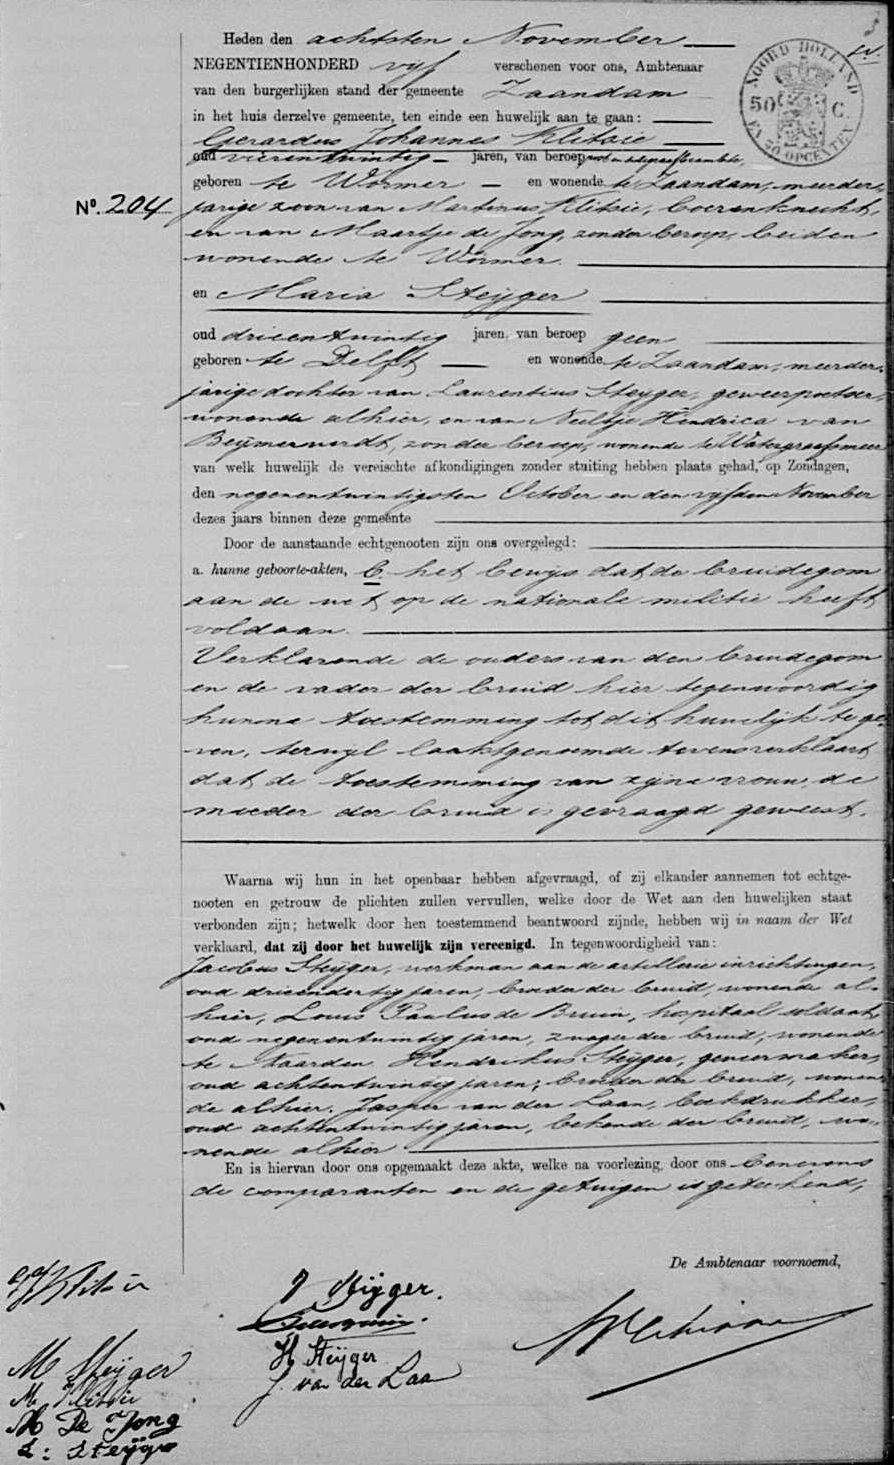 Heden den achtsten November
NEGENTIENHONDERD vijf verschenen voor ons, Ambtenaar
van den burgerlijken stand der gemeente Zaandam
in het huis derzelve gemeente, ten einde een huwelijk aan te gaan:
Gerardus Johannes Klitsie
oud vierentwintig jaren, van beroep
geboren te Wormer en wonende te Zaandam, meerder-
No. 204
jarige zoon van Martinus Klitsie, boerenknecht,
en van Maartje de Jong, zonder beroep, beiden
wonende te Wormer.
en Maria Steijger
oud drieentwintig jaren, van beroep geen
geboren te Delft en wonende te Zaandam, meerder-
jarige dochter van Laurentius Steijger, geweerpoetser,
wonende alhier, en van Neeltje Hendrica van
Beijmerwerdt, zonder beroep, wonende te Watergraafsmeer
van welk huwelijk de vereischte afkondigingen zonder stuiting hebben plaats gehad, op Zondagen,
den negenentwintigsten October en den vijfden November
dezes jaars binnen deze gemeente
Door de aanstaande echtgenooten zijn ons overgelegd:
a. hunne geboorte-akten, b. het bewijs dat de bruidegom
aan de wet op de nationale militie heeft
voldaan.
Verklarende de ouders van den bruidegom
en de vader der bruid hier tegenwoordig
hunne toestemming tot dit huwelijk te ge-
ven, terwijl laatstgenoemde tevens verklaart
dat de toestemming van zijne vrouw, de
moeder der bruid is gevraagd geweest.
Waarna wij hun in het openbaar hebben afgevraagd, of zij elkander aannemen tot echtge-
nooten en getrouw de plichten zullen vervullen, welke door de Wet aan den huwelijken staat
verbonden zijn; hetwelk door hen toestemmend beantwoord zijnde, hebben wij in naam der Wet
verklaard, dat zij door het huwelijk zijn vereenigd. In tegenwoordigheid van:
Jacobus Steijger, werkman aan de artillerie inrichtingen,
oud drieendertig jaren, broeder der bruid, wonende al-
hier, Louis Paulus de Bruin, hospitaal soldaat,
oud negenentwintig jaren, zwager der bruid, wonende
te Naarden Hendrikus Steijger, geweermaker,
oud achtentwintig jaren, broeder der bruid, wonen-
de alhier. Jasper van der Laan, boekdrukker,
oud achtentwintig jaren, bekende der bruid, wo-
nende alhier
En is hiervan door ons opgemaakt deze akte, welke na voorlezing, door ons benevens
de comparanten en de getuigen is geteekend,
De Ambtenaar voornoemd,
GJ Klitsie
J Steijger.
H Steijger
J. van der Laa
M Steijger
M. Klitsie
M De Jong
L: Steijger
NOORD HOLLAND
50 C.
EN 50 OPCENTEN